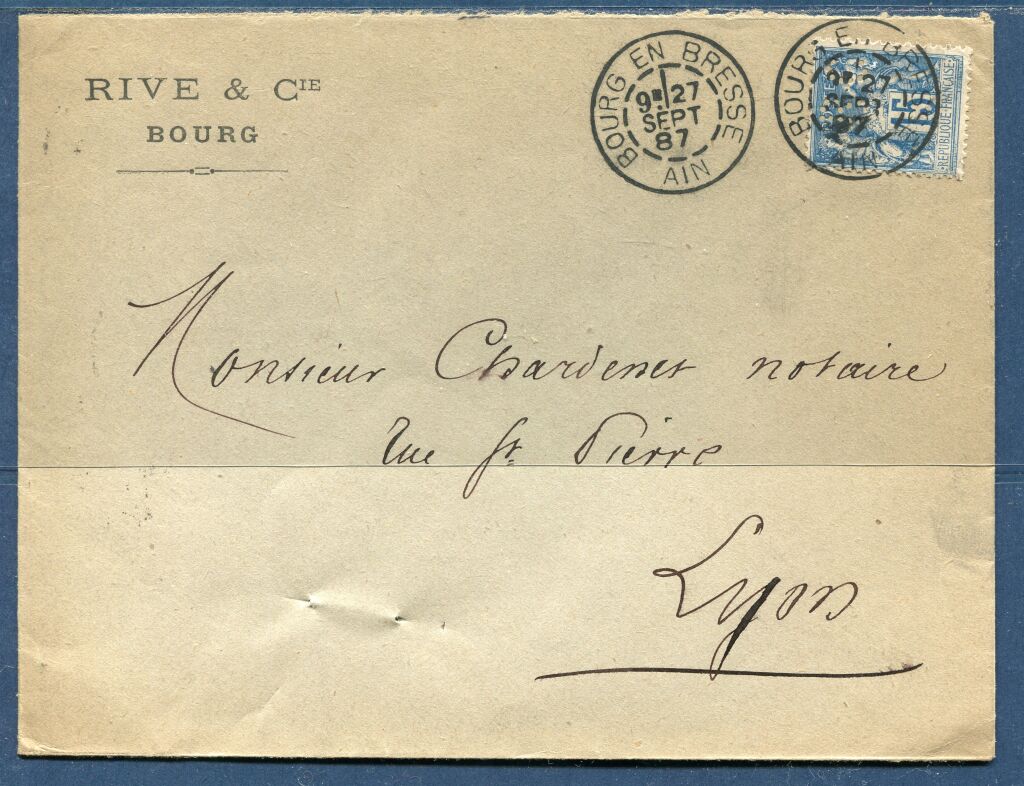 RIVE & CIE
BOURG
BOURG EN BRESSE
9E 27
SEPT
87
AIN
BOURG EN BRE
9E 27
SEPT
87
AIN
15
RÉPUBLIQUE FRANÇAISE
Monsieur Chardenet notaire
rue St Pierre
Lyon